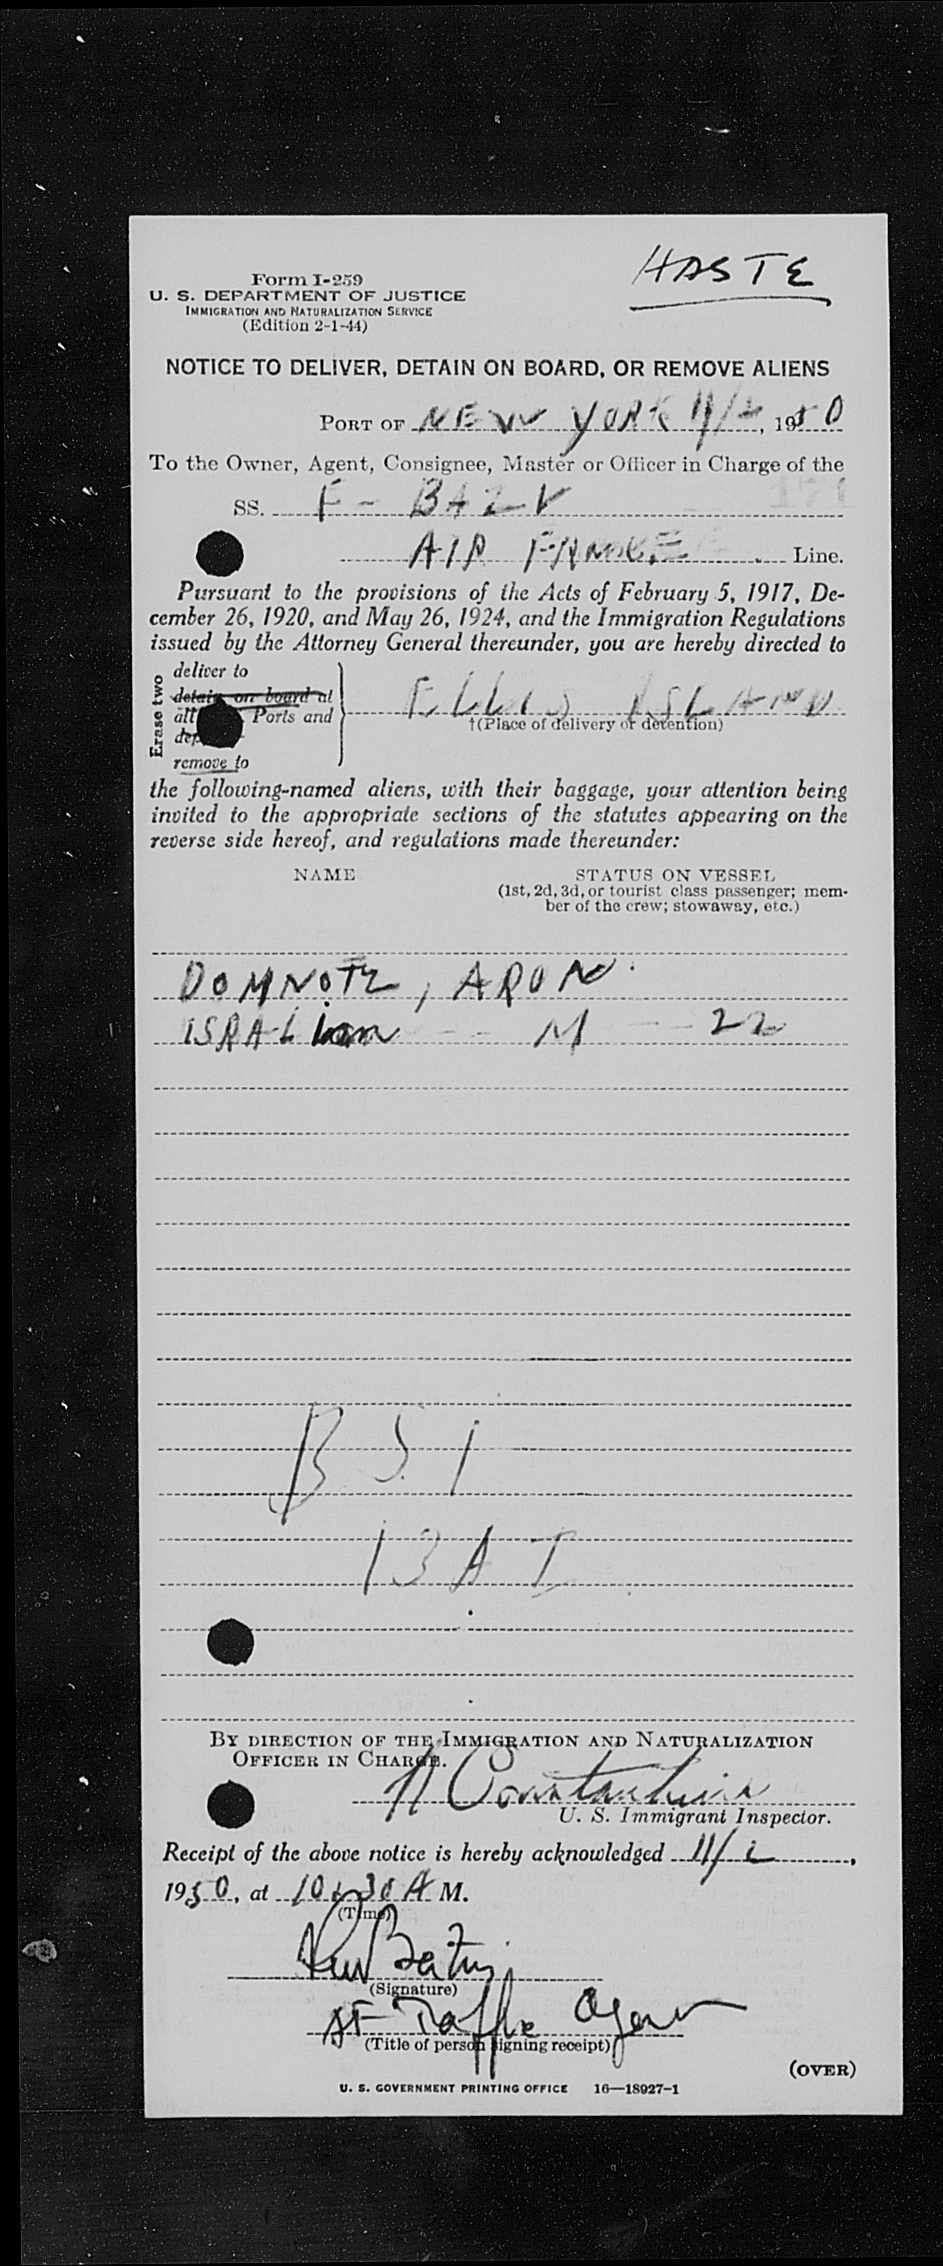 HASTE
Form I-259
U. S. DEPARTMENT OF JUSTICE
IMMIGRATION AND NATURALIZATION SERVICE
(Edition 2-1-44)
NOTICE TO DELIVER, DETAIN ON BOARD, OR REMOVE ALIENS
PORT OF NEW YORK 11/2, 1950
To the Owner, Agent, Consignee, Master or Officer in Charge of the
SS. F - BAZV
AIR FRANCE Line.
Pursuant to the provisions of the Acts of February 5, 1917, De-
cember 26, 1920, and May 26, 1924, and the Immigration Regulations
issued by the Attorney General thereunder, you are hereby directed to
Erase two
deliver to
detain on board at
all Ports and
remove to
ELLIS ISLAND
†(Place of delivery or detention)
the following-named aliens, with their baggage, your attention being
invited to the appropriate sections of the statutes appearing on the
reverse side hereof, and regulations made thereunder:
NAME
STATUS ON VESSEL
(1st, 2d, 3d, or tourist class passenger; mem-
ber of the crew; stowaway, etc.)
DOMNOTZ, ARON
M - 22
B S I
13 A I
BY DIRECTION OF THE IMMIGRATION AND NATURALIZATION
OFFICER IN CHARGE.
U. S. Immigrant Inspector.
Receipt of the above notice is hereby acknowledged 11/2,
1950, at 10:30 A M.
(Time)
(Signature)
AF Traffic Agent
(Title of person signing receipt)
(OVER)
U. S. GOVERNMENT PRINTING OFFICE 16—18927-1